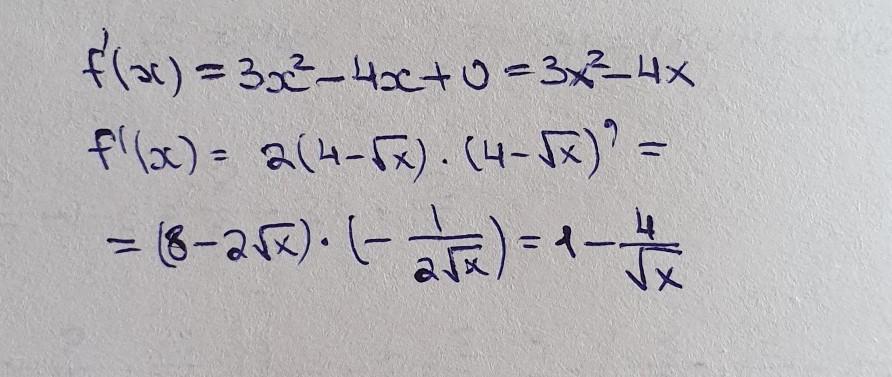 f'(x) = 3x² - 4x + 0 = 3x² - 4x
f'(x) = 2(4-√x) · (4-√x)' =
= (8-2√x) · (- 1/(2√x)) = 1 - 4/√x